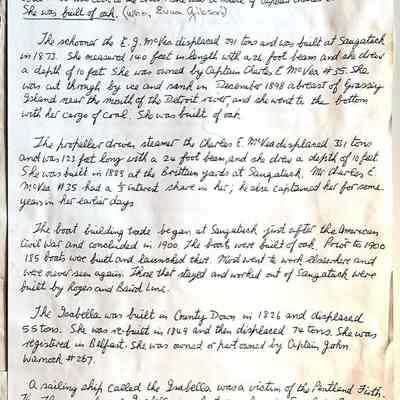 She was built of oak.
The schooner the E. J. McVea displaced 291 tons and was built at Saugatuck
in 1873. She measured 140 feet in length with a 26 foot beam and she drew
a depth of 10 feet. She was owned by Captain Charles E McVea #35. She
was cut through by ice and sank in December 1898 abreast of Grassy
Island near the mouth of the Detroit river, and she went to the bottom
with her cargo of coal. She was built of oak.
The propeller driven steamer the Charles E. McVea displaced 331 tons
and was 123 feet long with a 24 foot beam, and she drew a depth of 10 feet
She was built in 1888 at the Brittain yards at Saugatuck. Mr Charles E.
McVea #35 had a interest share in her; he also captained her for some
years in her earlier days
The boat building trade began at Saugatuck just after the American
Civil War and concluded in 1900. The boats were built of oak. Prior to 1900
185 boats were built and launched there. Most went to work elsewhere and
were never seen again. Those that stayed and worked out of Saugatuck were
built by Rogers and Baird Line.
The Isabella was built in County Down in 1826 and displaced
55 tons. She was re-built in 1849 and then displaced 74 tons. She was
registered in Belfast. She was owned or part owned by Captain John
Warnock #267.
A sailing ship called the Isabella was a victim of the Pentland Firth.